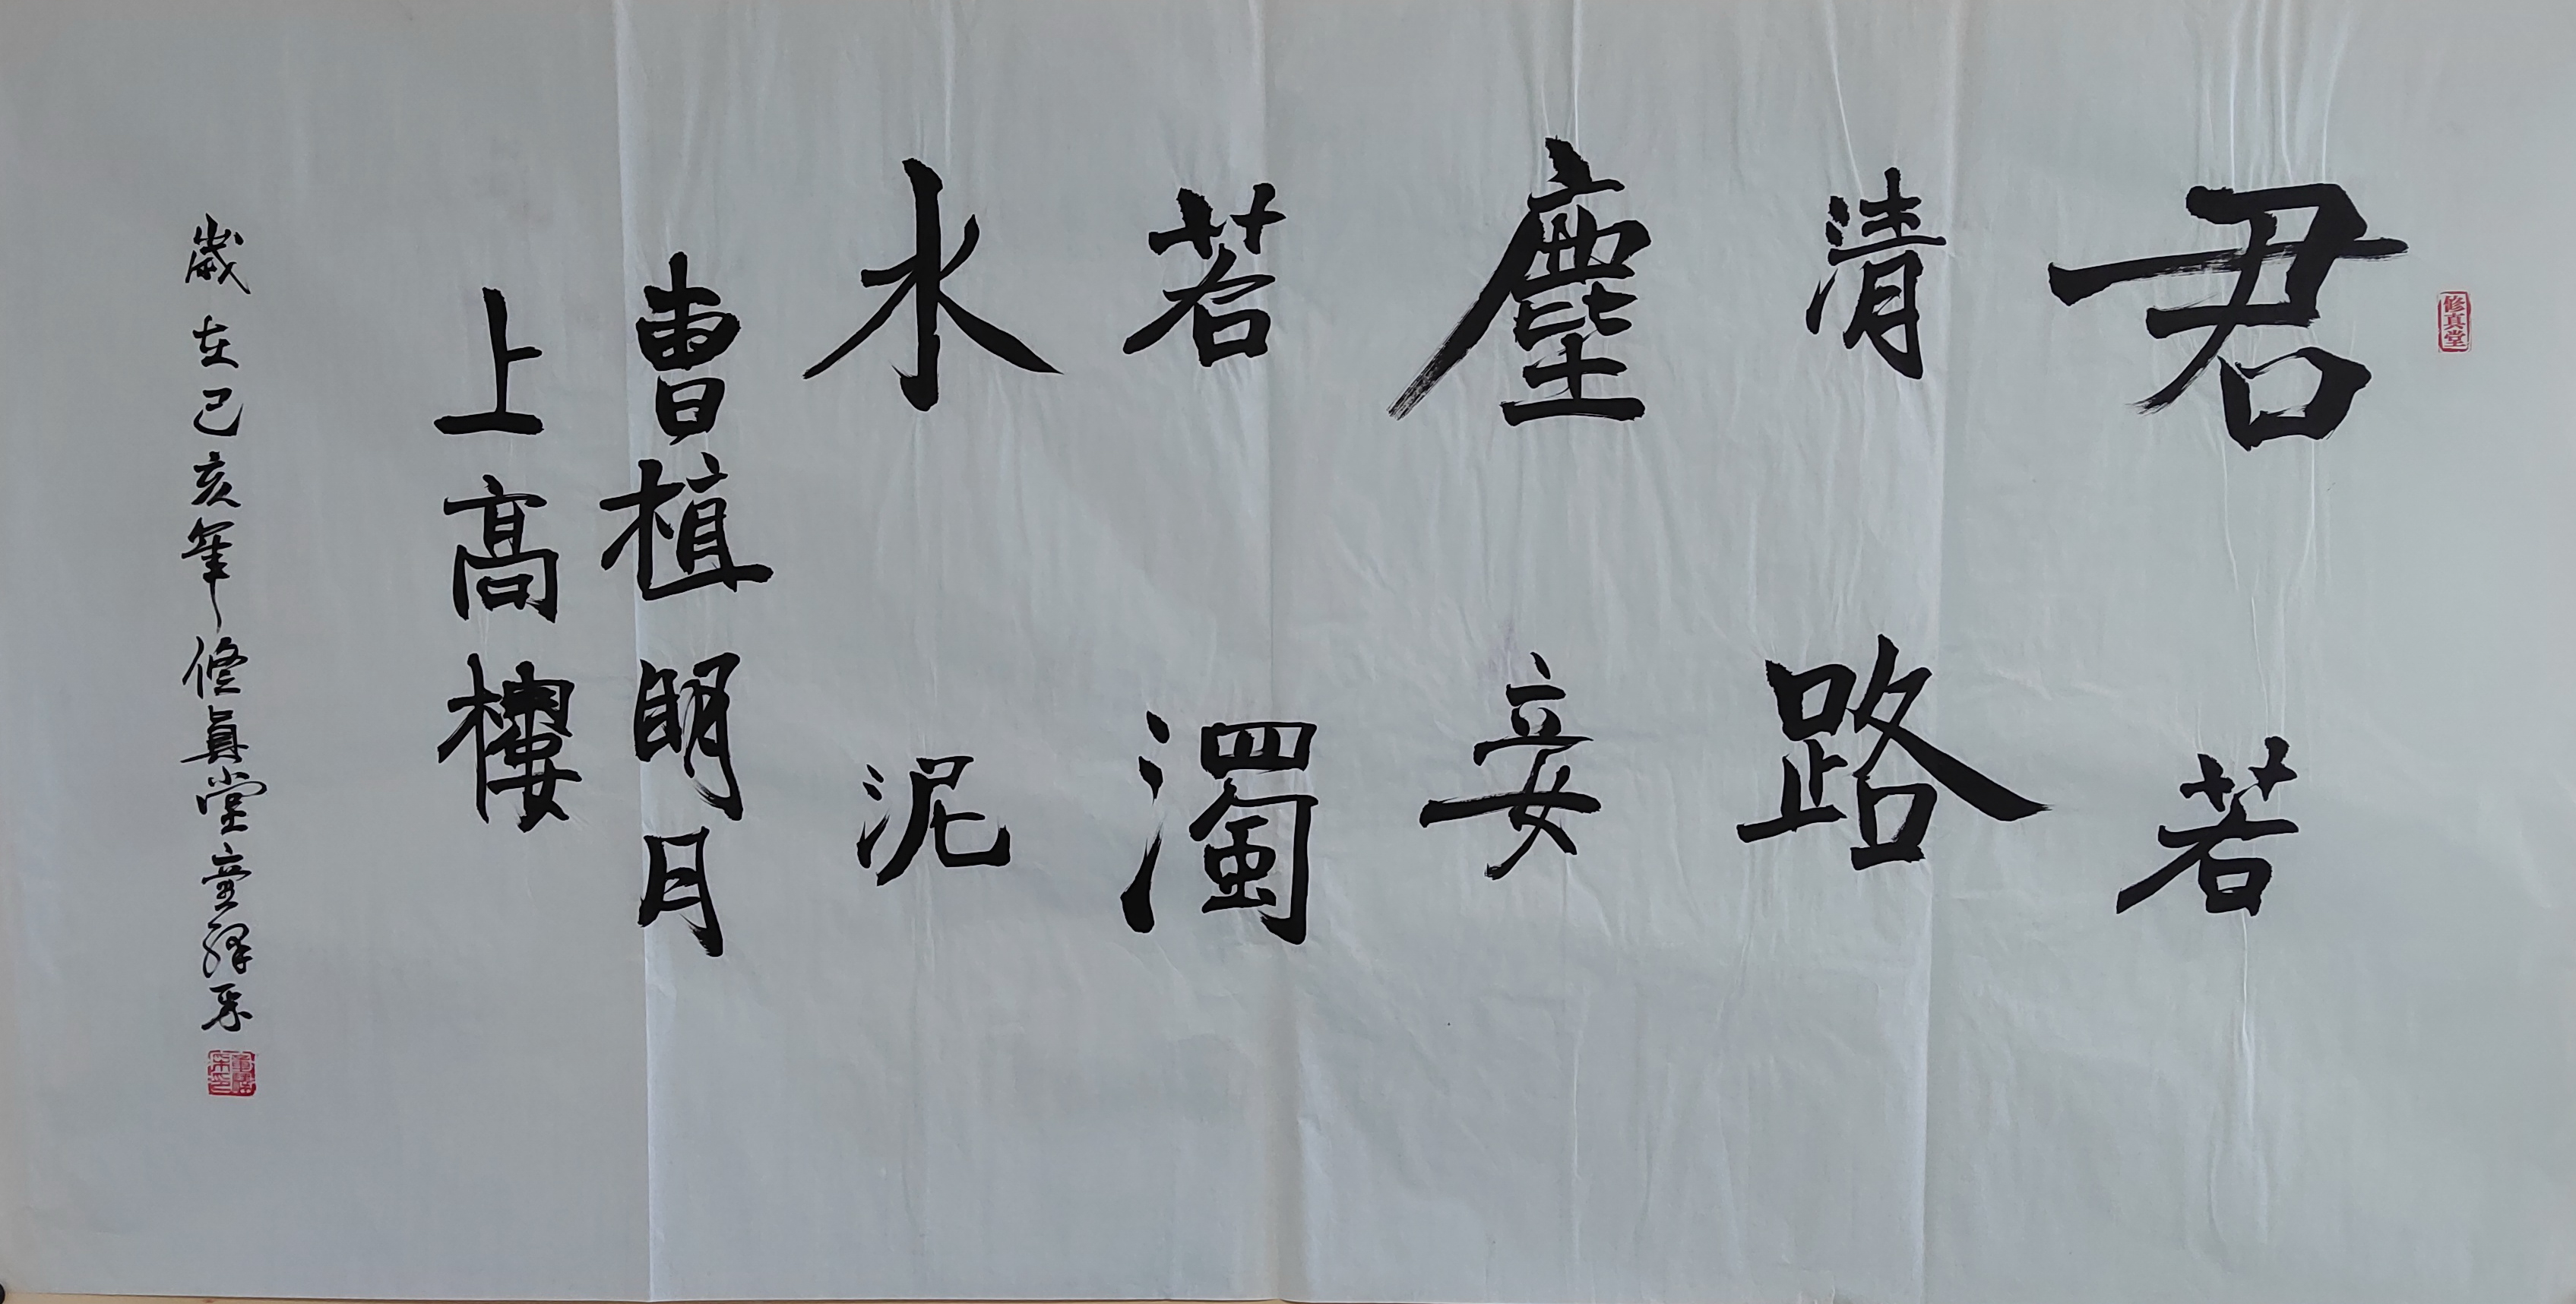 修真堂
君若
清路
塵妾
若濁
水泥
曹植明月
上高樓
歲在己亥年修真堂童